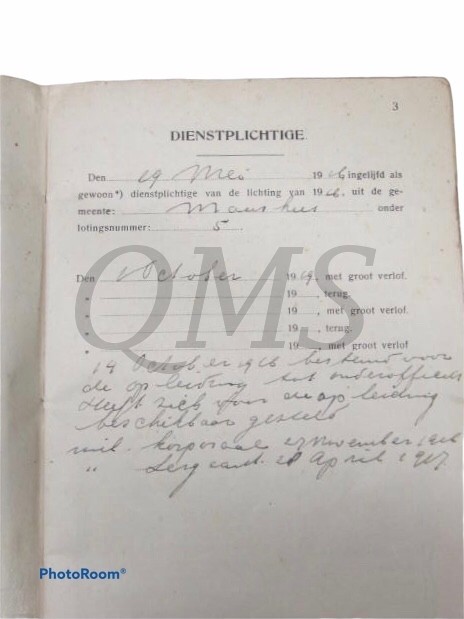 3
DIENSTPLICHTIGE
Den 19 Mei 1916, ingelijfd als
gewoon*) dienstplichtige van de lichting van 1916, uit de ge-
meente: onder
lotingsnummer: 5
Den 1 October 1919, met groot verlof.
" 19 , terug.
" 19 , met groot verlof.
" 19 , terug.
" 19 , met groot verlof
14 October 1916 bestemd voor
de opleiding tot onderofficier
Heeft zich voor de opleiding
beschikbaar gesteld
mil. korporaal november 1916
" Sergeant April 1917.
QMS
PhotoRoom®